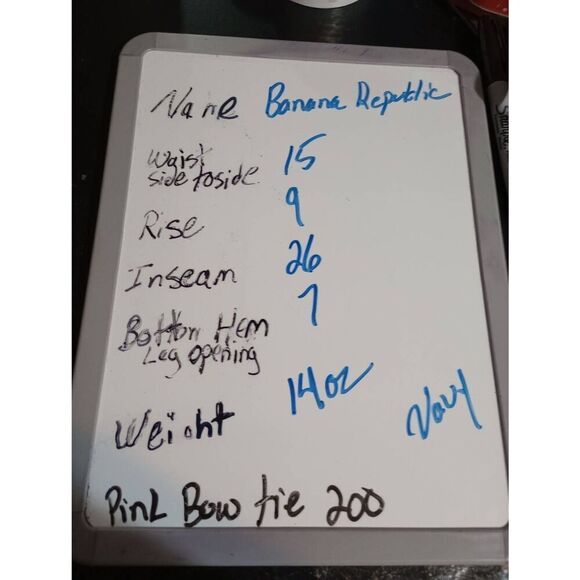 Name Banana Republic
Waist
side to side 15
Rise 9
Inseam 26
Bottom Hem 7
Leg opening
Weight 14oz Navy
Pink Bow tie 200